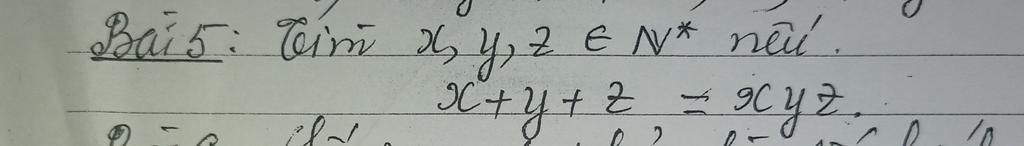 Bài 5: Tìm x, y, z ∈ N* nếu.
x + y + z = xyz.